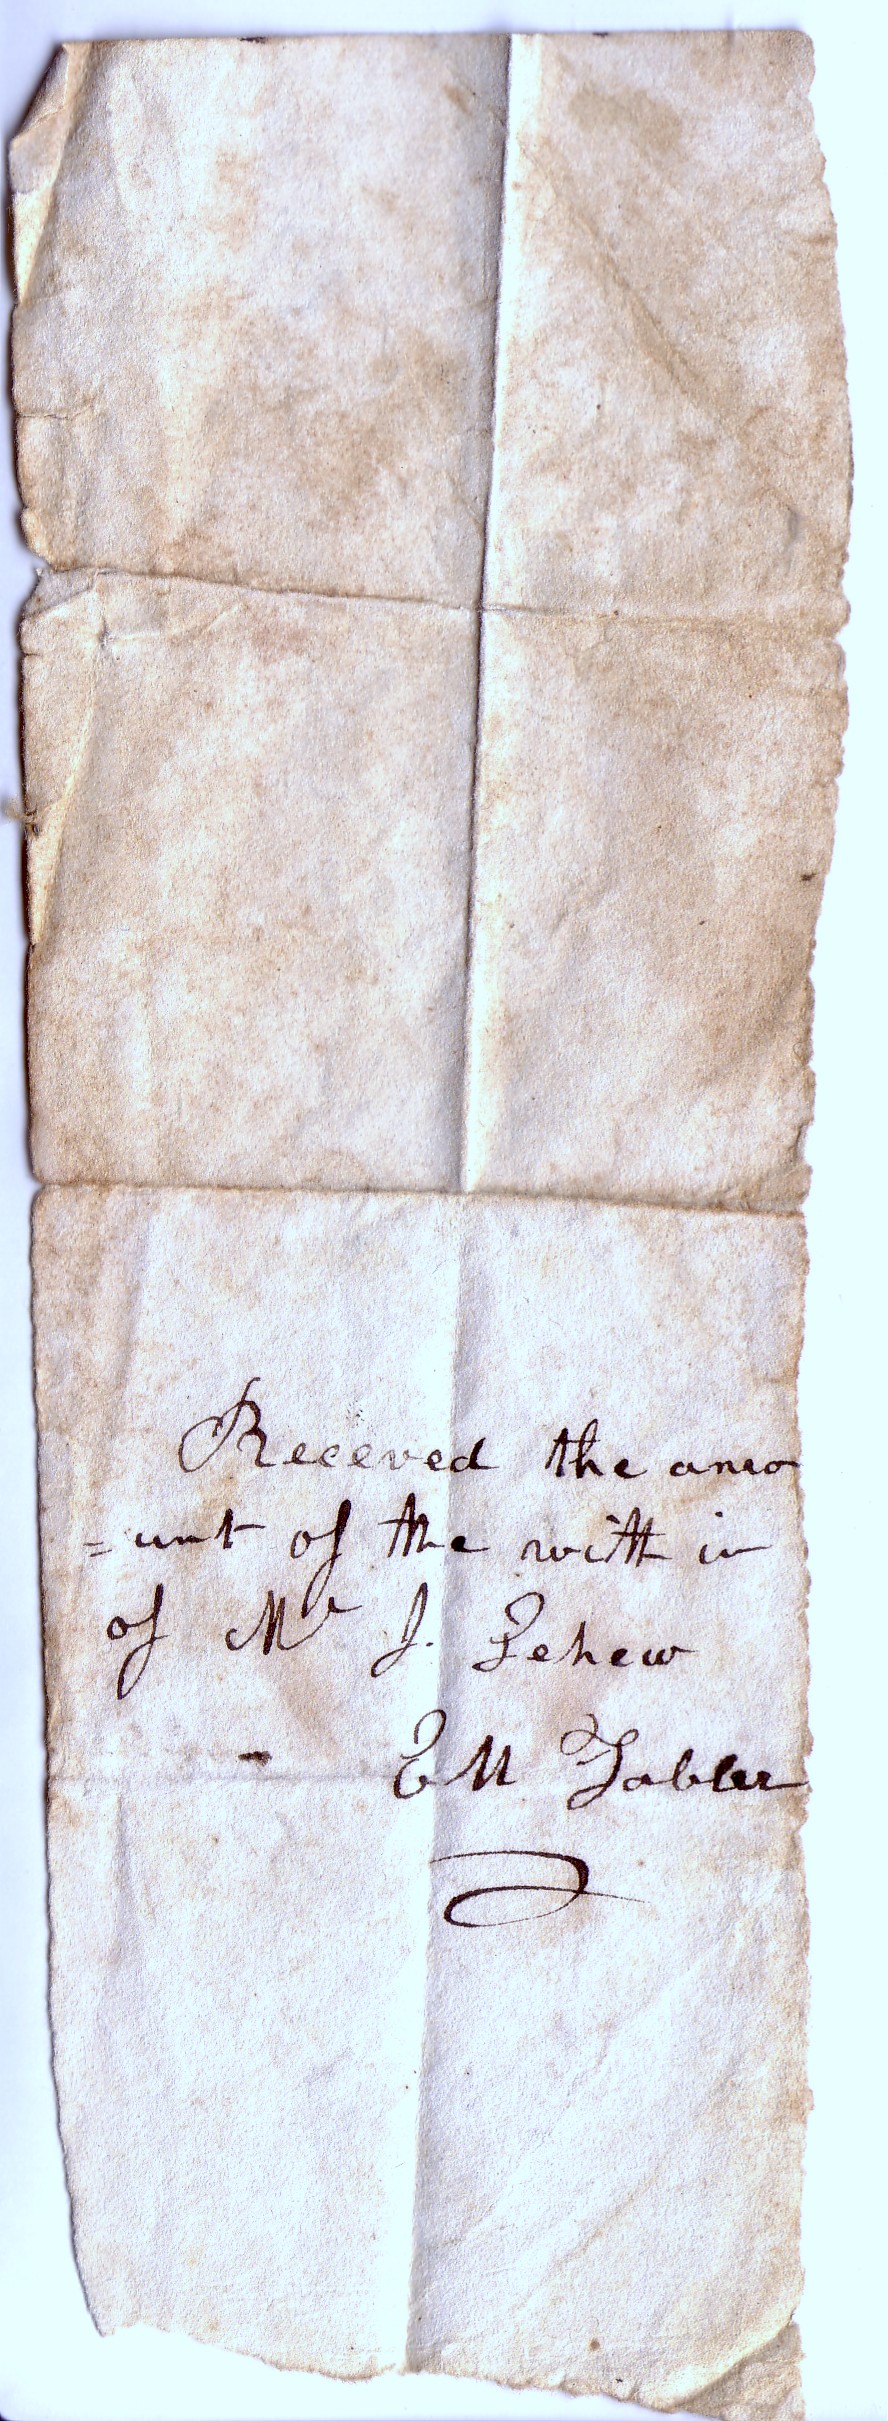 Receved the amo
=unt of the with in
of Mr J. Lehew
E M Tabler